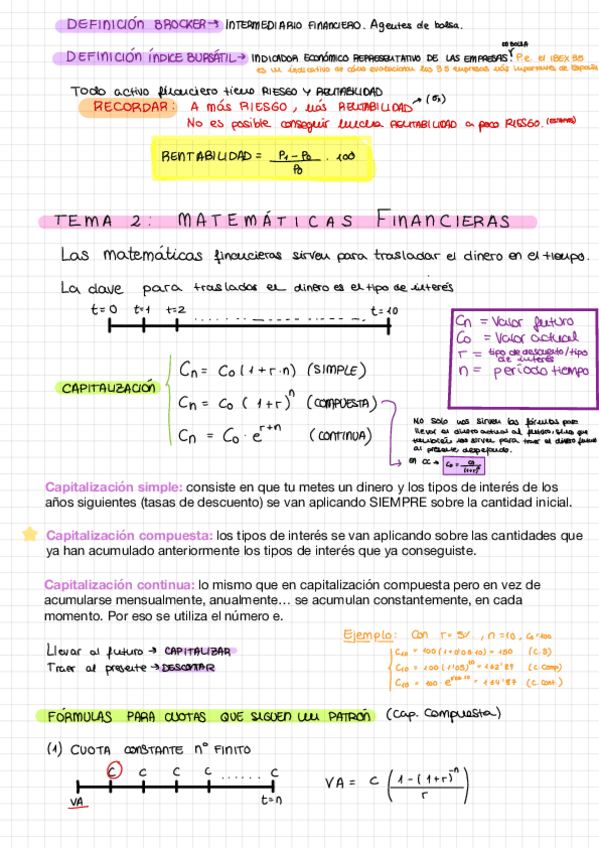 DEFINICIÓN BROCKER → INTERMEDIARIO FINANCIERO. Agentes de bolsa.
EN BOLSA
DEFINICIÓN ÍNDICE BURSÁTIL → INDICADOR ECONÓMICO REPRESENTATIVO DE LAS EMPRESAS. P.e. el IBEX 35
es un indicativo de cómo evolucionan las 35 empresas más importantes de España
Todo activo financiero tiene RIESGO y RENTABILIDAD
RECORDAR: A más RIESGO, más RENTABILIDAD
No es posible conseguir mucha RENTABILIDAD a poco RIESGO.
RENTABILIDAD = P1 - P0 / P0 . 100
TEMA 2: MATEMÁTICAS FINANCIERAS
Las matemáticas financieras sirven para trasladar el dinero en el tiempo.
La clave para trasladar el dinero es el tipo de interés
t=0 t=1 t=2 t=10
Cn = Valor futuro
Co = Valor actual
r = tipo de descuento/tipo de interés
n = período tiempo
CAPITALIZACIÓN
Cn = Co (1+r·n) (SIMPLE)
Cn = Co (1+r)^n (COMPUESTA)
Cn = Co · e^r+n (CONTINUA)
No solo nos sirven las fórmulas para
llevar el dinero actual al futuro, sino que
también nos sirven para traer el dinero futuro
al presente despejando.
en CC → Co = Cn / (1+r)^n
Capitalización simple: consiste en que tu metes un dinero y los tipos de interés de los
años siguientes (tasas de descuento) se van aplicando SIEMPRE sobre la cantidad inicial.
Capitalización compuesta: los tipos de interés se van aplicando sobre las cantidades que
ya han acumulado anteriormente los tipos de interés que ya conseguiste.
Capitalización continua: lo mismo que en capitalización compuesta pero en vez de
acumularse mensualmente, anualmente… se acumulan constantemente, en cada
momento. Por eso se utiliza el número e.
Ejemplo: Con r = 5%, n = 10, Co = 100
C10 = 100 (1+0'05·10) = 150 (C.S)
C10 = 100 (1'05)^10 = 162'89 (C.Comp)
C10 = 100 · e^0'05·10 = 164'87 (C.Cont.)
Llevar al futuro → CAPITALIZAR
Traer al presente → DESCONTAR
FÓRMULAS PARA CUOTAS QUE SIGUEN UN PATRÓN (Cap. Compuesta)
(1) CUOTA CONSTANTE nº FINITO
C C C C ...... C
VA t=n
VA = C (1 - (1+r)^-n / r)